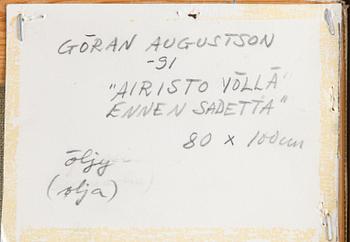 GÖRAN AUGUSTSON
-91
"AIRISTO YÖLLÄ
ENNEN SADETTA"
80 x 100cm
öljy
(olja)